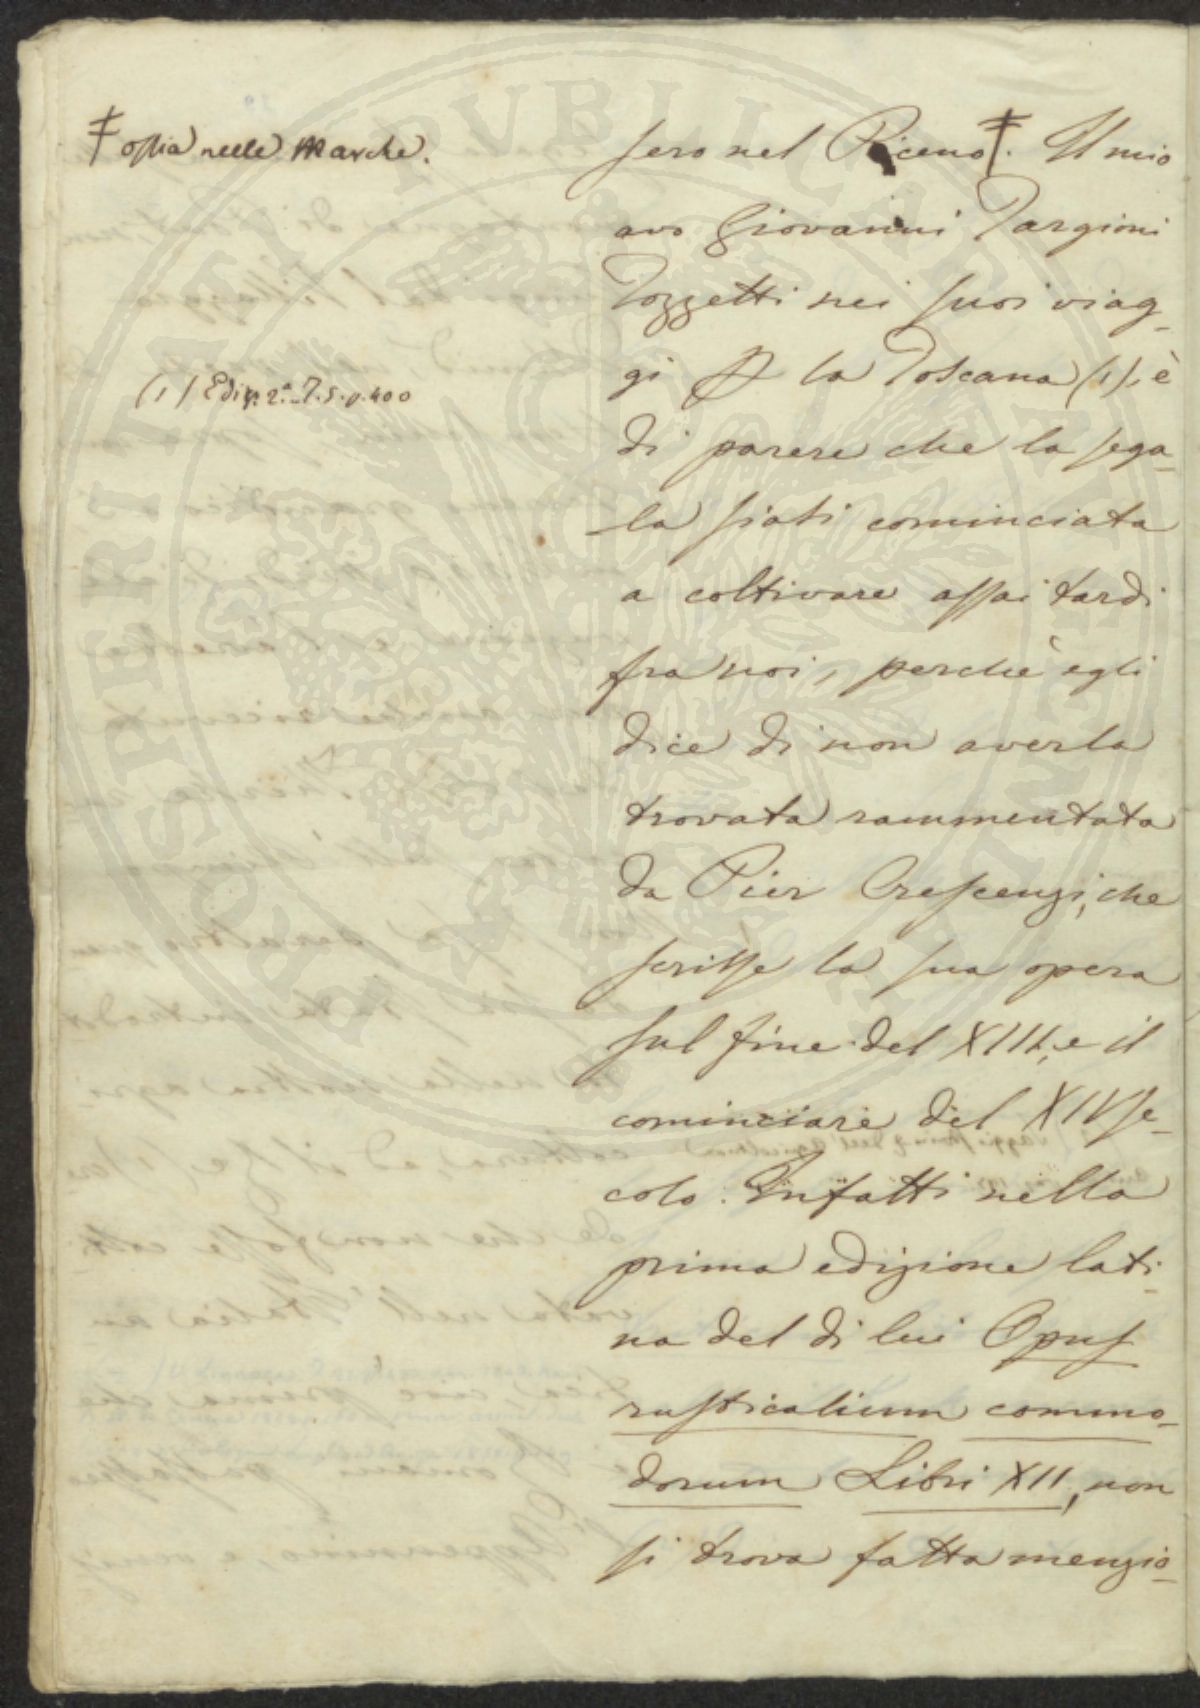 ‡ ossia nelle Marche.
(1) Ediz. 2.a T. 5. p. 400
sero nel Piceno‡. Il mio
avo Giovanni Targioni
Tozzetti nei suoi viag-
gi p la Toscana (1), è
di parere che la sega-
la siasi cominciata
a coltivare assai tardi
fra noi, perchè egli
dice di non averla
trovata rammentata
da Pier Crescenzi, che
scrisse la sua opera
sul fine del XIII, e il
cominciare del XIV se-
colo. Infatti nella
prima edizione lati-
na del di lui Opus
rusticalium commo-
dorum Libri XII, non
si trova fatta menzio-
PROSPERITATI PVBLICAE AVGENDAE